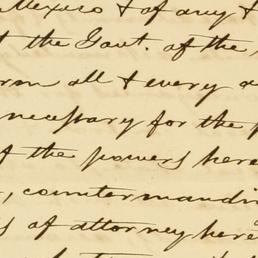 Mexico & of any &
the Govt. of the
all & every
necessary for the
of the powers here
, countermandin
s of attorney here